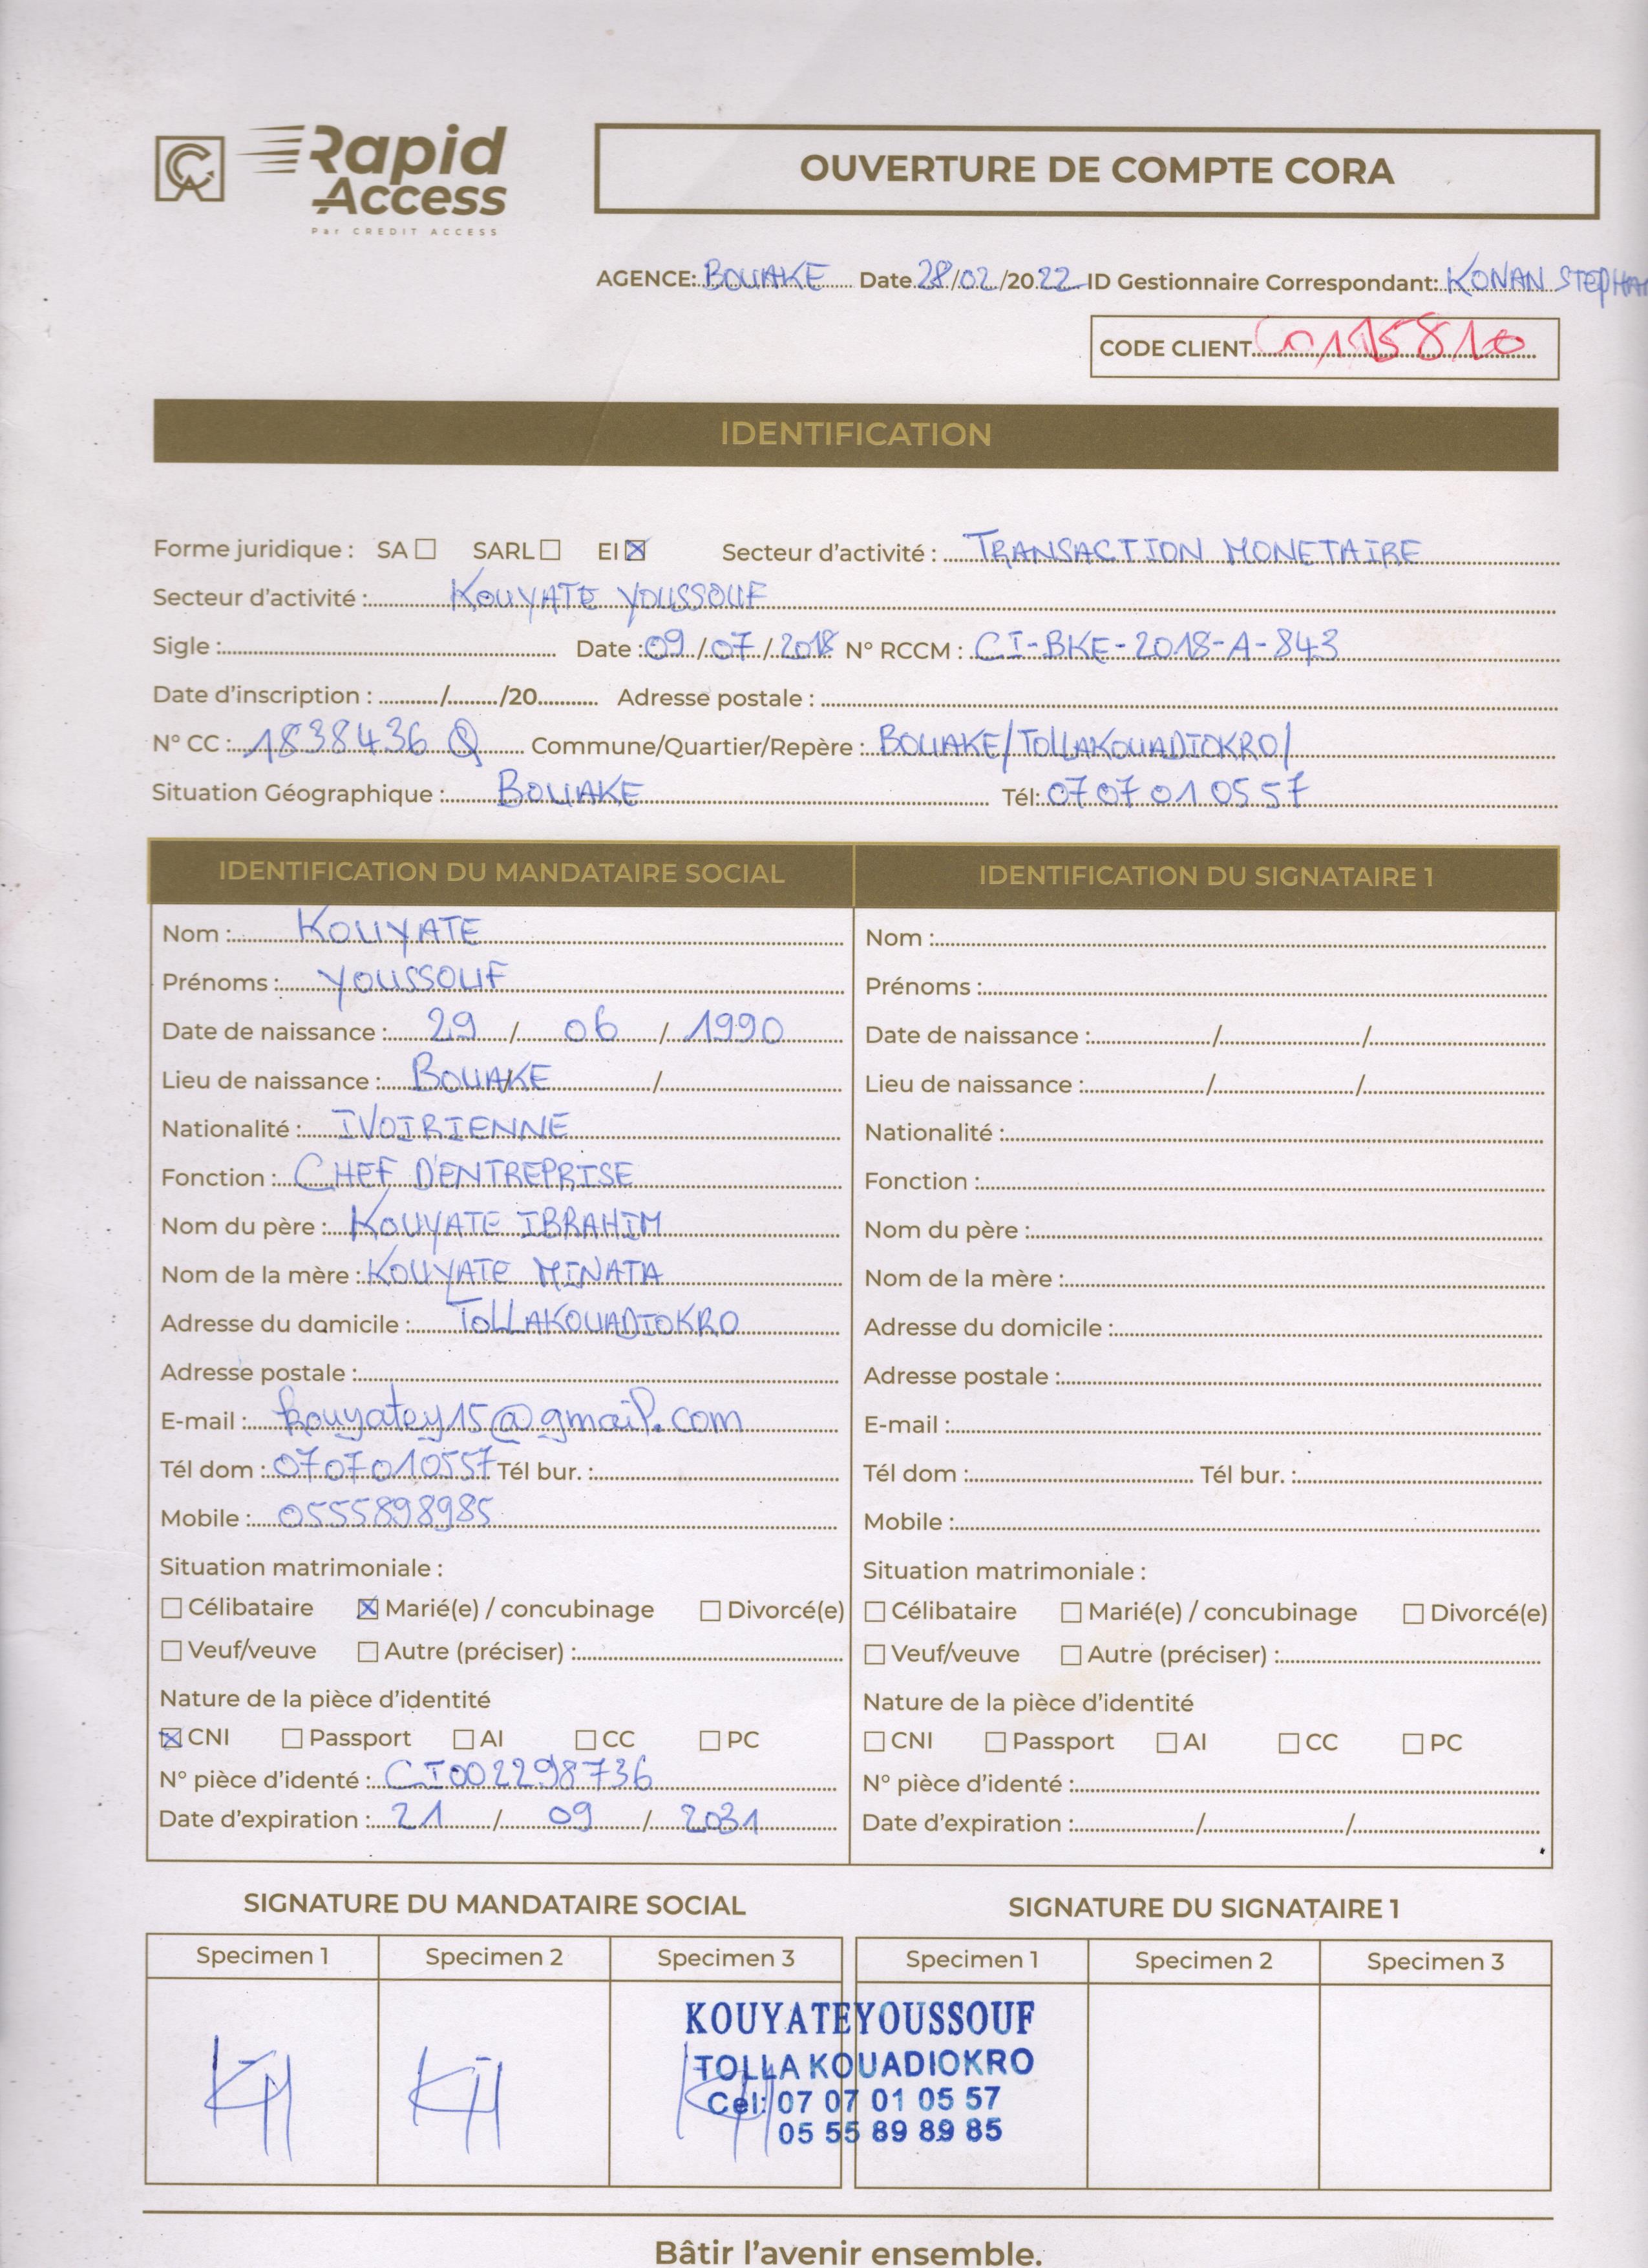 Rapid
Access
Par CREDIT ACCESS
OUVERTURE DE COMPTE CORA
AGENCE: BOUAKE Date 28/02/2022 ID Gestionnaire Correspondant: KONAN
CODE CLIENT
IDENTIFICATION
Forme juridique : SA ☐ SARL ☐ EI ☒ Secteur d'activité : TRANSACTION MONETAIRE
Secteur d'activité : KOUYATE YOUSSOUF
Sigle : Date : 09/07/2018 N° RCCM : CI-BKE-2018-A-843
Date d'inscription : ......../......../20.......... Adresse postale :
N° CC : 1838436 Q Commune/Quartier/Repère : BOUAKE/TOLLAKOUADIOKRO/
Situation Géographique : BOUAKE Tél: 07 07 01 05 57
IDENTIFICATION DU MANDATAIRE SOCIAL
Nom : KOUYATE
Prénoms : YOUSSOUF
Date de naissance : 29 / 06 / 1990
Lieu de naissance : BOUAKE / /
Nationalité : IVOIRIENNE
Fonction : CHEF D'ENTREPRISE
Nom du père : KOUYATE IBRAHIM
Nom de la mère : KOUYATE MINATA
Adresse du domicile : TOLLAKOUADIOKRO
Adresse postale :
E-mail : kouyatey15@gmail.com
Tél dom : 0707010557 Tél bur. :
Mobile : 0555898985
Situation matrimoniale :
☐ Célibataire ☒ Marié(e) / concubinage ☐ Divorcé(e)
☐ Veuf/veuve ☐ Autre (préciser) :
Nature de la pièce d'identité
☒ CNI ☐ Passport ☐ AI ☐ CC ☐ PC
N° pièce d'identé : CI002298736
Date d'expiration : 21 / 09 / 2031
IDENTIFICATION DU SIGNATAIRE 1
Nom :
Prénoms :
Date de naissance : / /
Lieu de naissance : / /
Nationalité :
Fonction :
Nom du père :
Nom de la mère :
Adresse du domicile :
Adresse postale :
E-mail :
Tél dom : Tél bur. :
Mobile :
Situation matrimoniale :
☐ Célibataire ☐ Marié(e) / concubinage ☐ Divorcé(e)
☐ Veuf/veuve ☐ Autre (préciser) :
Nature de la pièce d'identité
☐ CNI ☐ Passport ☐ AI ☐ CC ☐ PC
N° pièce d'identé :
Date d'expiration : / /
SIGNATURE DU MANDATAIRE SOCIAL
Specimen 1 Specimen 2 Specimen 3
SIGNATURE DU SIGNATAIRE 1
Specimen 1 Specimen 2 Specimen 3
KOUYATE YOUSSOUF
TOLLA KOUADIOKRO
Cel: 07 07 01 05 57
05 55 89 89 85
Bâtir l'avenir ensemble.